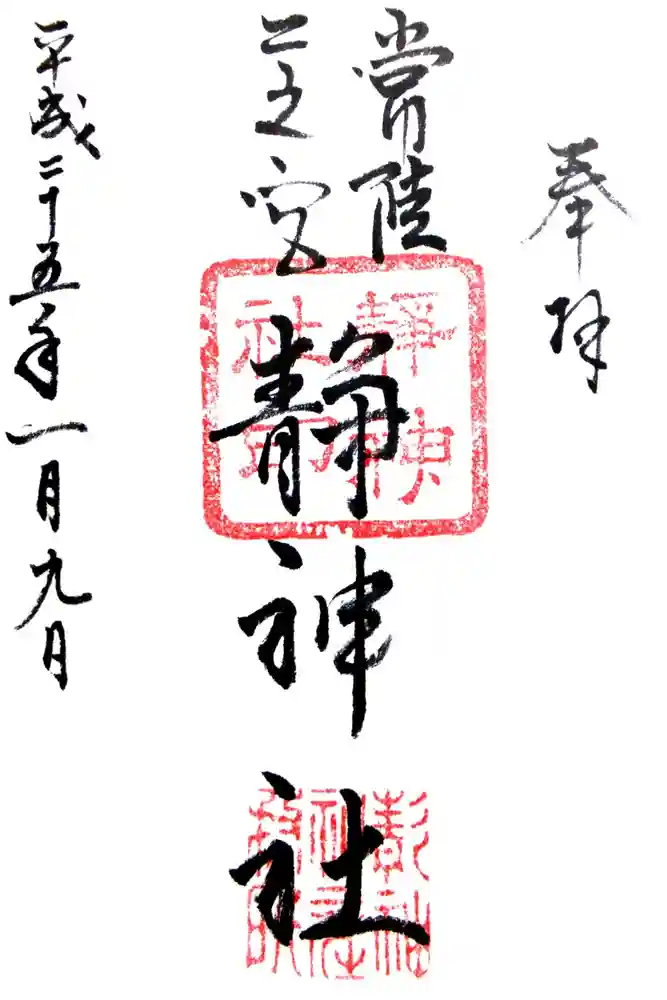 奉拝
常陸
二之宮
静神社
平成二十五年一月九日